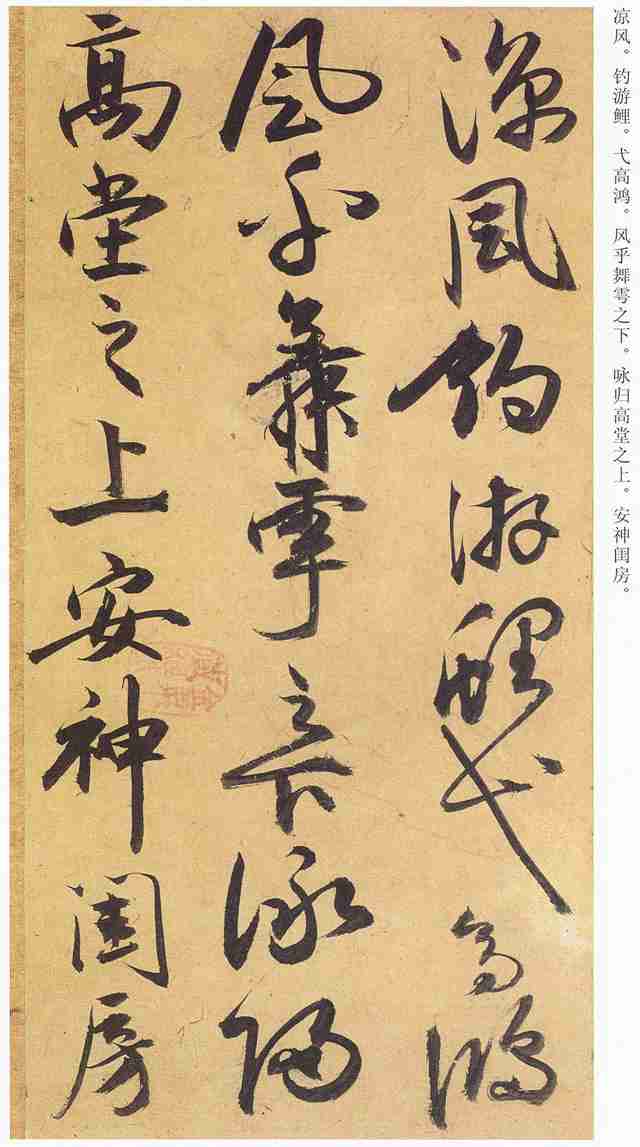 凉风。钓游鲤。弋高鸿。风乎舞雩之下。咏归高堂之上。安神闺房。
凉风钓游鲤弋高鸿
风乎舞雩之下咏归
高堂之上安神闺房